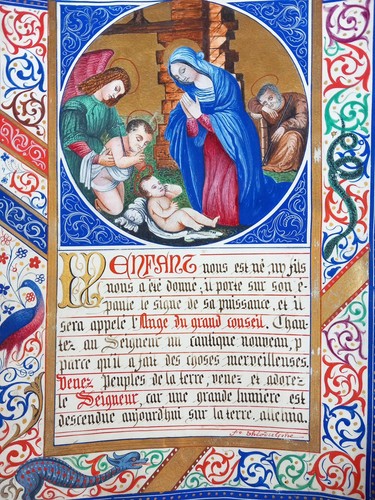 UN ENFANT nous est né, un fils
nous a été donné; il porte sur son é-
paule le signe de sa puissance, et il
sera appelé l'Ange du grand conseil. Chan-
tez au Seigneur un cantique nouveau, p
parce qu'il a fait des choses merveilleuses.
Venez Peuples de la terre, venez et adorez
le Seigneur, car une grande lumière est
descendue aujourd'hui sur la terre, alleluia.